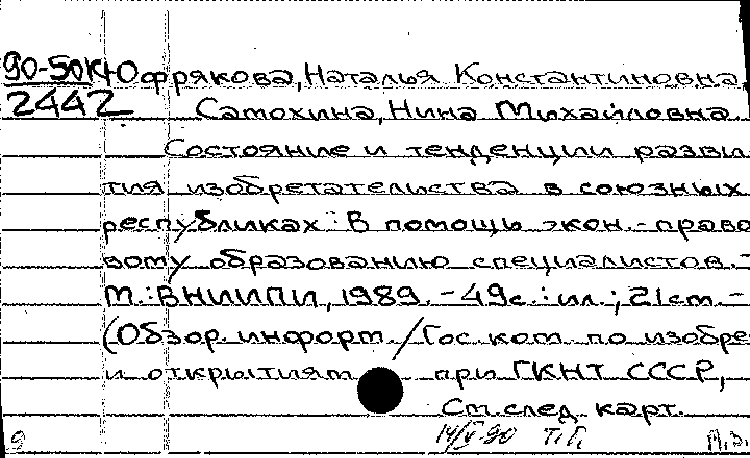 90-50К
2442
Юфрякова, Наталья Константиновна,
Самохина, Нина Михайловна.
Состояние и тенденции разви-
тия изобретательства в союзных
республиках: В помощь экон.-право-
вому образованию специалистов. -
М.: ВНИИПИ, 1989. - 49с.: ил.; 21см. -
(Обзор. информ. / Гос. ком. по изобре
и открытиям при ГКНТ СССР,
См. след. карт.
9 14/V-90 Т.Г. М.З.